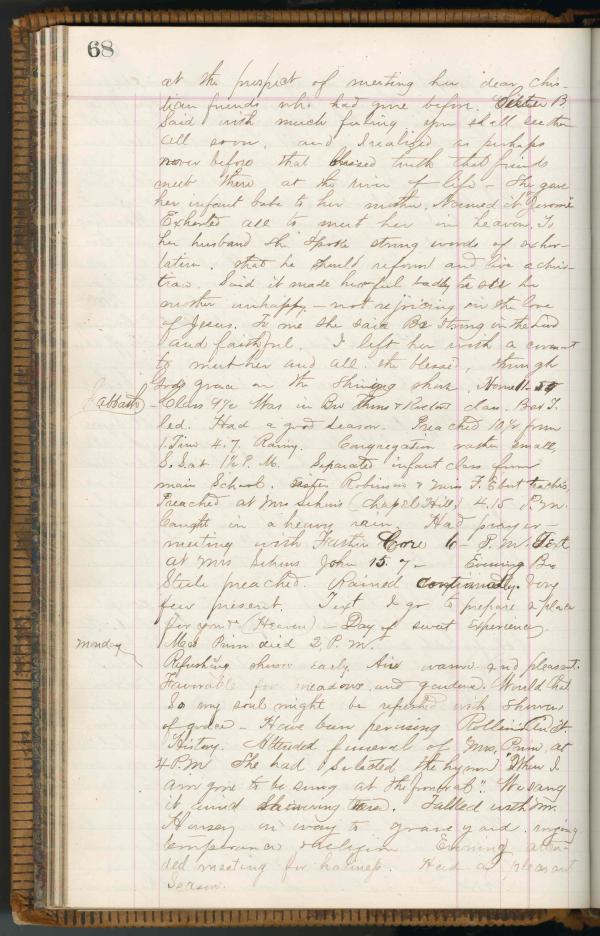 68
at the prospect of meeting her dear Chris-
tian friends who had gone before. Sister B.
Said with much feeling you shall see them
all soon. and I realized as perhaps
never before that blessed truth that friends
meet there at the river of life – She gave
her infant babe to her mother. Named it "Jerome"
Exhorted all to meet her in heaven. To
her husband she spoke strong words of exhor-
tation. that he should reform and live a chris-
tian. Said it made her feel badly to see her
mother unhappy – not rejoicing in the love
of Jesus. To me she said Be strong in the Lord
and faithful. I left her with a covenant
to meet her and all the blessed, through
Gods grace on the Shining shore.
Sabbath – Class 9½ Was in Bro class. Bro T.
led. Had a good season. Preached 10½ from
1. Tim 4.7. Rainy. Congregation rather small,
S.S. at 1½ P.M. Separated infant class from
main School. Robinson & Miss F. Ebert teachers,
Preached at Mrs (Chapel Hill) 4.15 P.M.
Caught in a heavy rain. Had prayer-
meeting with Father Core 6 – P.M. Text
at Mrs John 15.7 – Evening Bro
preached. Rained continually. Very
few present. Text I go to prepare a place
for you" (Heaven) – Day of sweet experience,
Mrs Prim died 2, P.M.
Monday
Refreshing shower early. Air warm and pleasant.
Favorable for meadows and gardens. Would that
So my soul might be refreshed with showers
of grace – Have been perusing
History. Attended funeral of Mrs. Prim at
4 P.M She had selected the hymn "When I
am gone to be sung at the funeral". We sang
it amid tears. Talked with Mr.
in way to grave yard. urging
temperance & religion Evening atten-
ded meeting for holiness. Had a pleasant
Season.